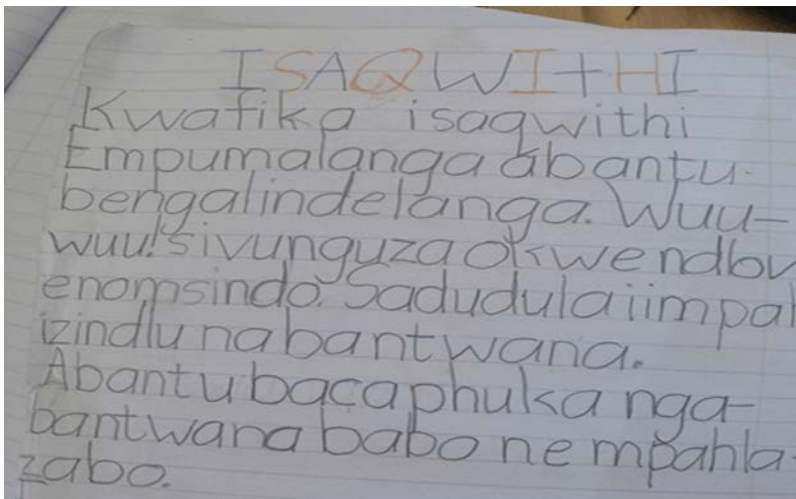 ISAQWITHI
Kwafika isaqwithi
Empumalanga abantu
bengalindelanga. Wuu-
wuu! sivunguza okwendlov
enomsindo. Sadudula iimpah
izindlu nabantwana.
Abantu bacaphuka nga-
bantwana babo ne mpahla-
zabo.